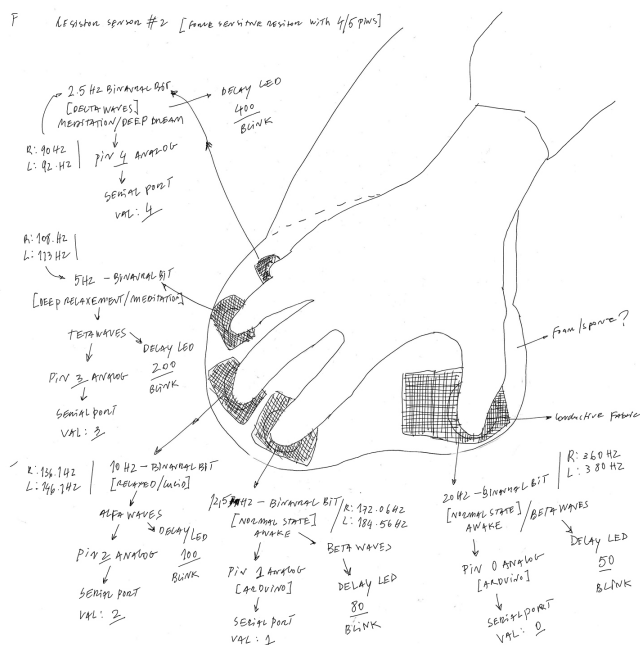 F RESISTOR SENSOR #2 [FORCE SENSITIVE RESITOR WITH 4/5 PINS]
2.5 HZ BINAURAL BIT
[DELTA WAVES]
MEDITATION/DEEP DREAM
DELAY LED
400
BLINK
R: 90HZ
L: 92.HZ
PIN 4 ANALOG
SERIAL PORT
VAL: 4
R: 108.HZ
L: 113HZ
5HZ - BINAURAL BIT
[DEEP RELAXEMENT/MEDITATION]
TETAWAVES
DELAY LED
200
BLINK
PIN 3 ANALOG
SERIAL PORT
VAL: 3
FOAM/SPONGE?
CONDUCTIVE FABRIC
R: 136.1HZ
L: 146.1HZ
10 HZ - BINAURAL BIT
[RELAXED/LUCID]
ALFAWAVES
DELAY LED
100
BLINK
PIN 2 ANALOG
SERIAL PORT
VAL: 2
12,5 HZ - BINAURAL BIT
[NORMAL STATE]
AWAKE
R: 172.06HZ
L: 184.56HZ
BETA WAVES
PIN 1 ANALOG
[ARDUINO]
DELAY LED
80
BLINK
SERIAL PORT
VAL: 1
20HZ - BINAURAL BIT
[NORMAL STATE]
AWAKE
/BETA WAVES
R: 360HZ
L: 380HZ
DELAY LED
50
BLINK
PIN 0 ANALOG
[ARDUINO]
SERIAL PORT
VAL: 0